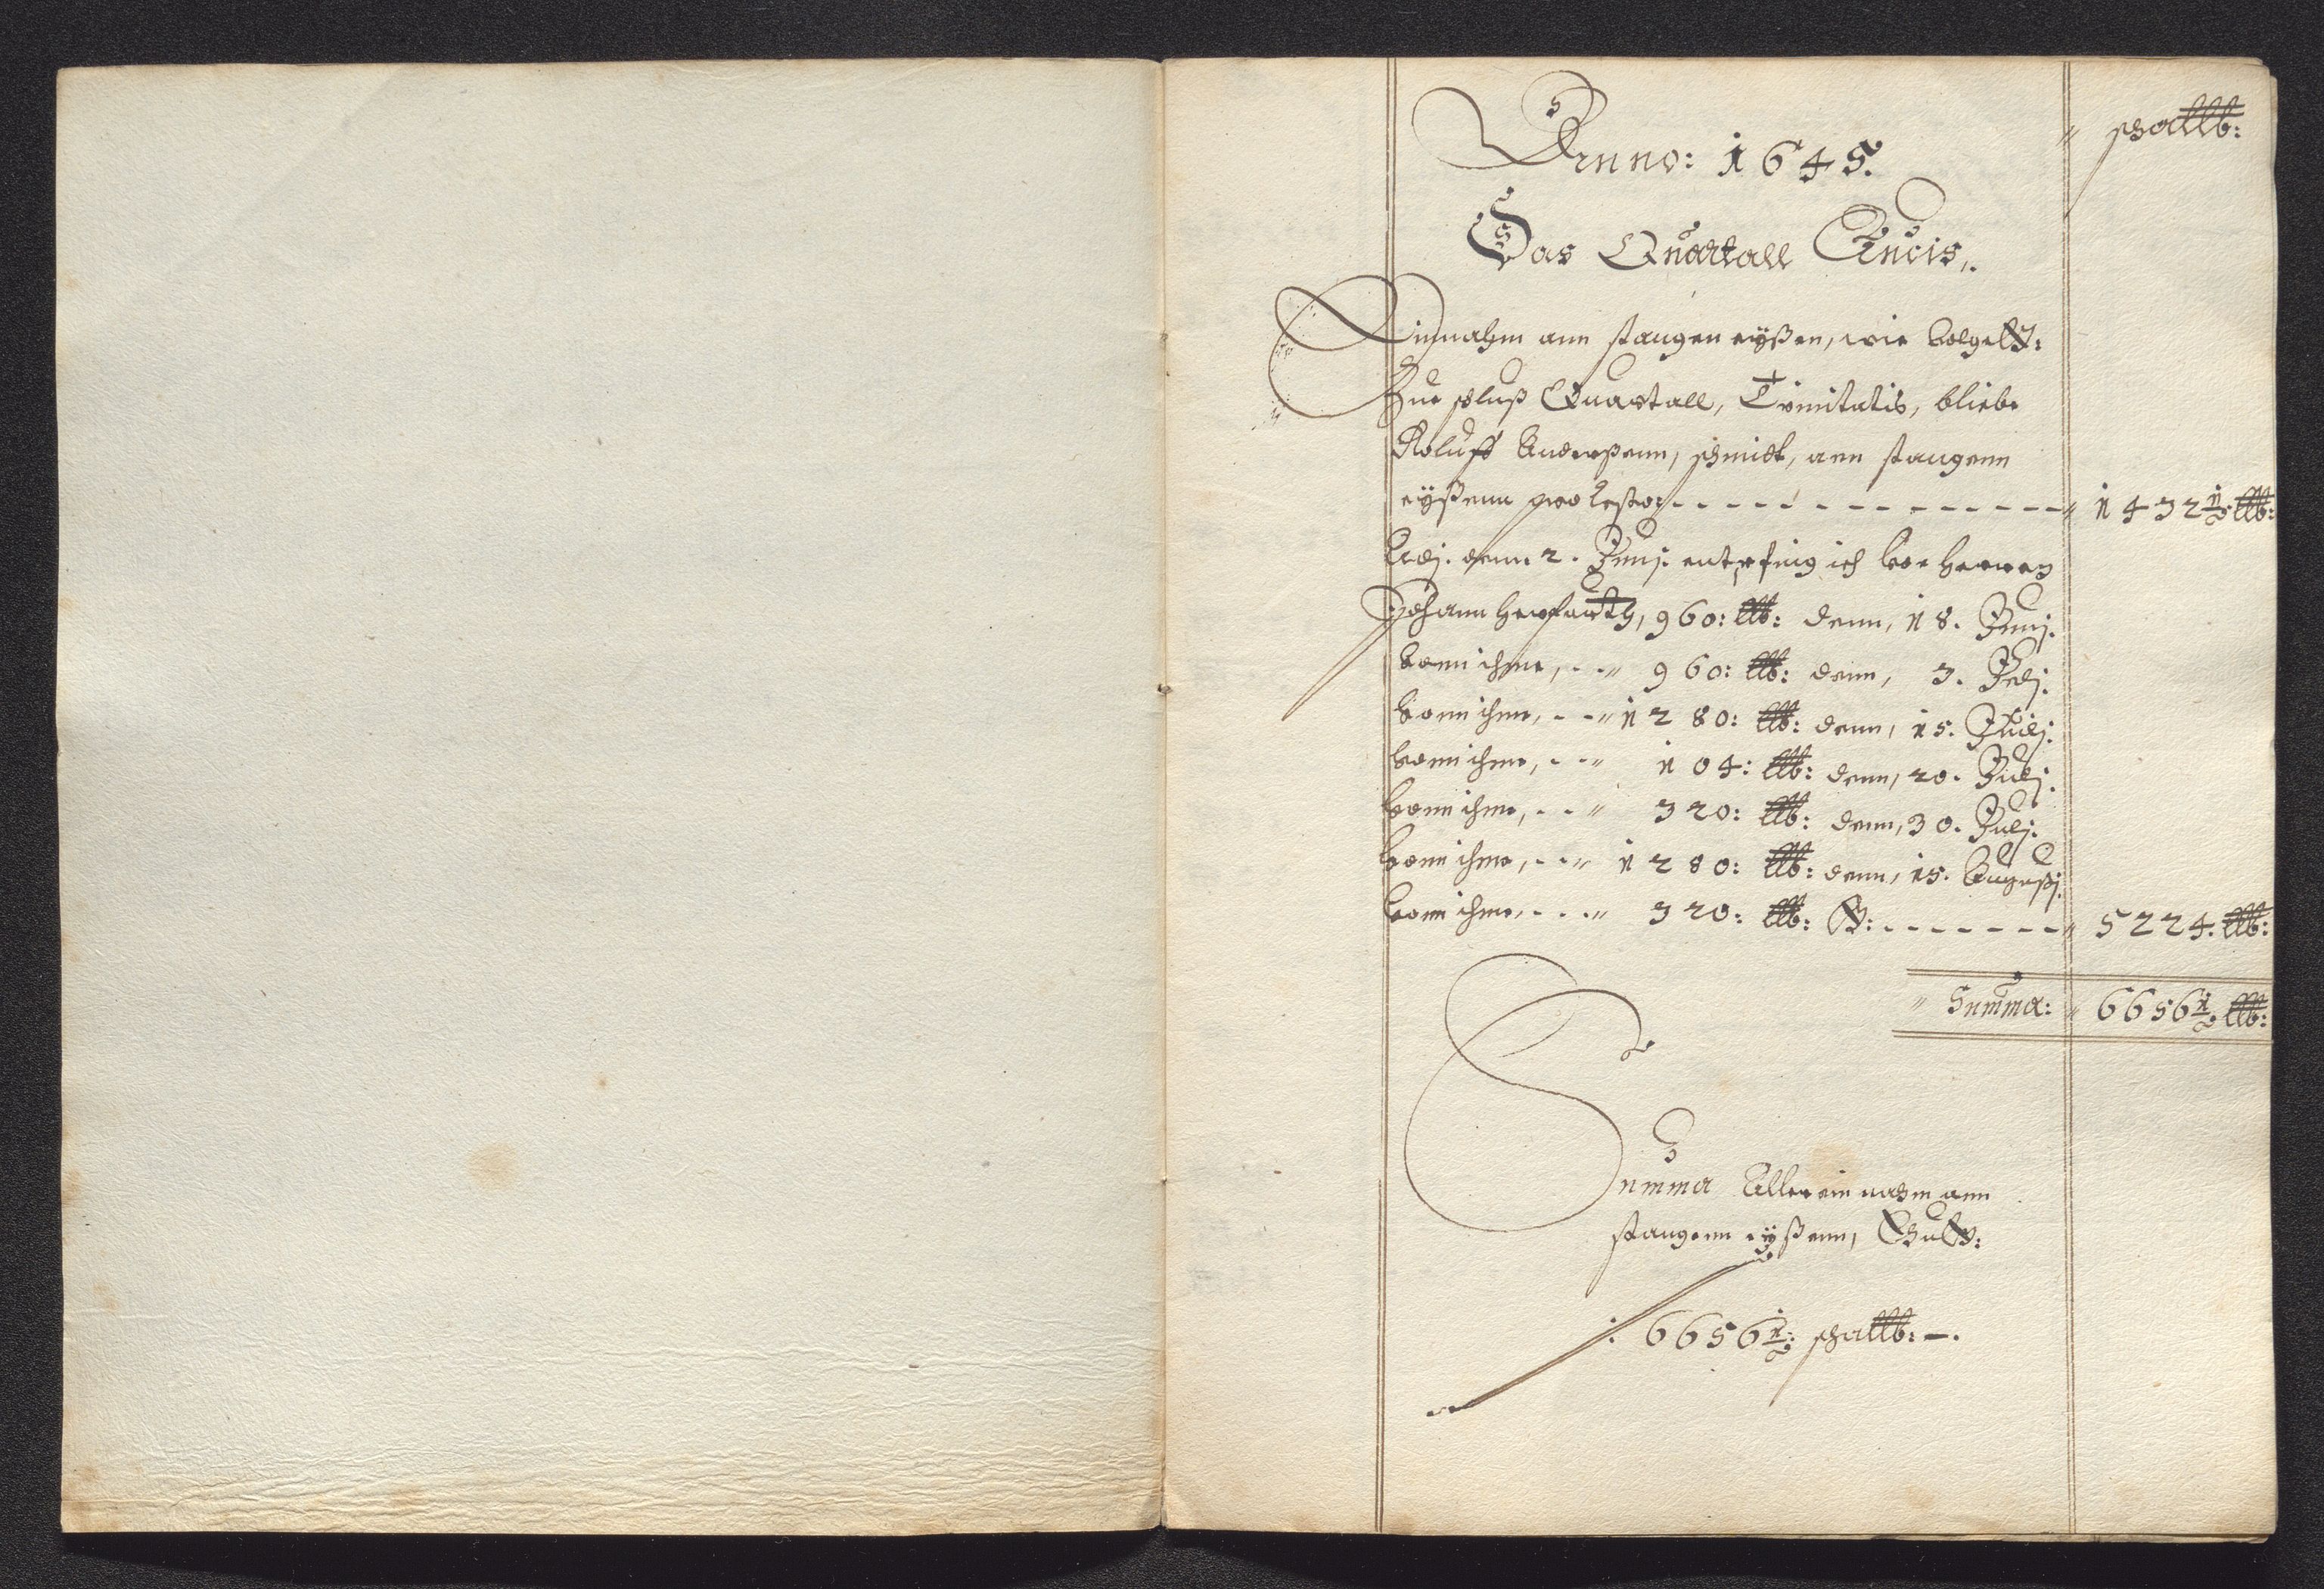 Anno: 1645.
schallb:
Das Quartall Crucis,.
Einnahm ann stangen eÿßen, wie volgett:
Zue schluß Quartall, Trinitatis, bliebe
Roluff Anderßenn, schmidt, ann stangenn
eÿßenn pro resto: 1432 1/2 lb:
Adj. denn 2. Junj. entpfing ich von Herren
Johann Herfurth, 960: lb: denn, 18. Junj.
vonn ihme, 960: lb: denn, 3. Julj.
vonn ihme, 1280: lb: denn, 15. Julj.
vonn ihme, 104: lb: denn, 20. Julj.
vonn ihme, 320: lb: denn, 30. Julj.
vonn ihme, 1280: lb: denn, 15. Augustj.
vonn ihme, 320: lb: 5224. lb:
Summa: 6656 1/2 lb:
Summa Aller einnahm ann
stangenn eÿßenn, thutt:
: 6656 1/2: schallb: —.